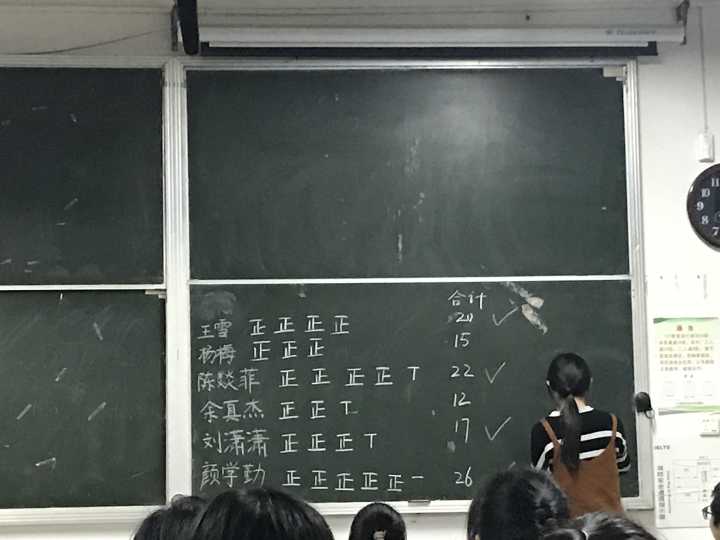 合计
王雪 正 正 正 正 20
杨梅 正 正 正 15
陈燚菲 正 正 正 正 T 22
余真杰 正 正 T 12
刘潇潇 正 正 正 T 17
颜学勤 正 正 正 正 正 一 26
11
10
9
8
7
IELTS